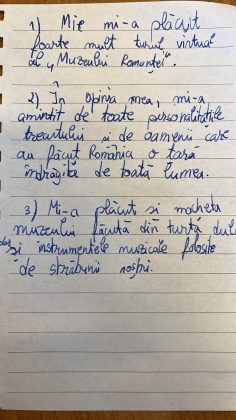 1) Mie mi-a plăcut
foarte mult turul virtual
al „Muzeului Romanței".
2) În opinia mea, mi-a
amintit de toate personalitățile
trecutului și de oamenii care
au făcut România o țară
îndrăgită de toată lumea.
3) Mi-a plăcut și macheta
muzeului făcută din turtă dulce
și instrumentele muzicale folosite
de străbunii noștri.